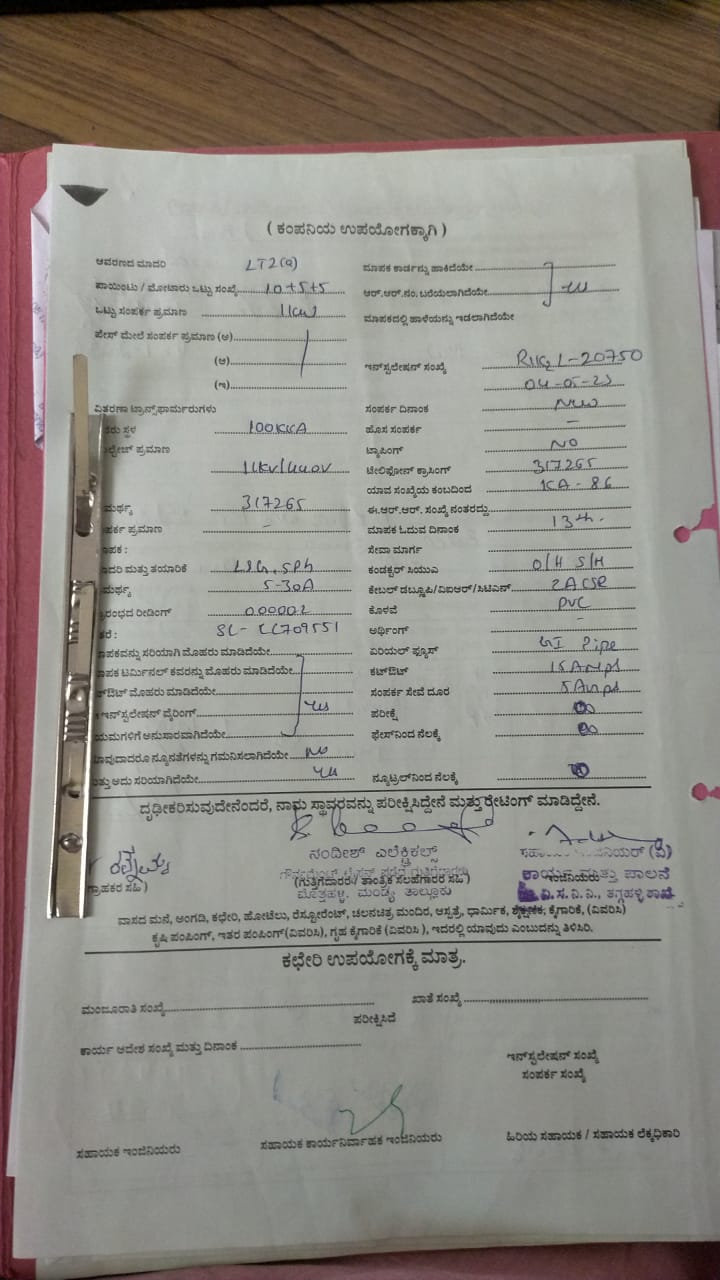 ( ಕಂಪನಿಯ ಉಪಯೋಗಕ್ಕಾಗಿ )
ಆವರಣದ ಮಾದರಿ LT2(a)
ಪಾಯಿಂಟು / ಮೋಟಾರು ಒಟ್ಟು ಸಂಖ್ಯೆ 10+5+5
ಒಟ್ಟು ಸಂಪರ್ಕ ಪ್ರಮಾಣ 1kw
ಪೇಸ್ ಮೇಲೆ ಸಂಪರ್ಕ ಪ್ರಮಾಣ (ಅ)
(ಆ)
(ಇ)
ವಿತರಣಾ ಟ್ರಾನ್ಸ್‌ಫಾರ್ಮರುಗಳು
ಸ್ಥಳ 100KVA
ಪ್ರಮಾಣ
11KV/440V
317265
ಪ್ರಮಾಣ -
ಮತ್ತು ತಯಾರಿಕೆ L&G. SPh
5-30A
ರೀಡಿಂಗ್ 000002
SL-
ಸರಿಯಾಗಿ ಮೊಹರು ಮಾಡಿದೆಯೇ
ಟರ್ಮಿನಲ್ ಕವರನ್ನು ಮೊಹರು ಮಾಡಿದೆಯೇ
ಮೊಹರು ಮಾಡಿದೆಯೇ
ಇನ್‌ಸ್ಟಲೇಷನ್ ವೈರಿಂಗ್ yes
ಅನುಸಾರವಾಗಿದೆಯೇ
ನ್ಯೂನತೆಗಳನ್ನು ಗಮನಿಸಲಾಗಿದೆಯೇ No
ಅದು ಸರಿಯಾಗಿದೆಯೇ yes
ಮಾಪಕ ಕಾರ್ಡನ್ನು ಹಾಕಿದೆಯೇ
ಆರ್.ಆರ್.ನಂ. ಬರೆಯಲಾಗಿದೆಯೇ yes
ಮಾಪಕದಲ್ಲಿ ಹಾಳೆಯನ್ನು ಇಡಲಾಗಿದೆಯೇ
ಇನ್‌ಸ್ಟಲೇಷನ್ ಸಂಖ್ಯೆ
ಸಂಪರ್ಕ ದಿನಾಂಕ New
ಹೊಸ ಸಂಪರ್ಕ -
ಟ್ಯಾಪಿಂಗ್ NO
ಟೆಲಿಫೋನ್ ಕ್ರಾಸಿಂಗ್ 317265
ಯಾವ ಸಂಖ್ಯೆಯ ಕಂಬದಿಂದ
ಈ.ಆರ್.ಆರ್. ಸಂಖ್ಯೆ ನಂತರದ್ದು
ಮಾಪಕ ಓದುವ ದಿನಾಂಕ 13th.
ಸೇವಾ ಮಾರ್ಗ
ಕಂಡಕ್ಟರ್ ಸಿಯುಎ O/H S/H
ಕೇಬಲ್ ಡಬ್ಲೂಪಿ/ವಿಐಆರ್/ಸಿಟಿಎಸ್ 2ACSR
ಕೊಳವೆ PVC
ಅರ್ಥಿಂಗ್ -
ಏರಿಯಲ್ ಫ್ಯೂಸ್ GI Pipe
ಕಟ್‌ಔಟ್ 15Amps
ಸಂಪರ್ಕ ಸೇವೆ ದೂರ 5Amps
ಪರೀಕ್ಷೆ
ಫೇಸ್‌ನಿಂದ ನೆಲಕ್ಕೆ
ನ್ಯೂಟ್ರಲ್‌ನಿಂದ ನೆಲಕ್ಕೆ
ದೃಢೀಕರಿಸುವುದೇನೆಂದರೆ, ನಾನು ಸ್ಥಾವರವನ್ನು ಪರೀಕ್ಷಿಸಿದ್ದೇನೆ ಮತ್ತು ರೇಟಿಂಗ್ ಮಾಡಿದ್ದೇನೆ.
ನಂದೀಶ್ ಎಲೆಕ್ಟ್ರಿಕಲ್ಸ್
(ಗುತ್ತಿಗೆದಾರರು / ತಾಂತ್ರಿಕ ಸಲಹೆಗಾರರ ಸಹಿ )
ಮಂಡ್ಯ ತಾಲ್ಲೂಕು
(ವಿ)
ಪಾಲನೆ
ಶಾಖೆ
ವಾಸದ ಮನೆ, ಅಂಗಡಿ, ಕಛೇರಿ, ಹೋಟೆಲು, ರೆಸ್ಟೋರೆಂಟ್, ಚಲನಚಿತ್ರ ಮಂದಿರ, ಆಸ್ಪತ್ರೆ, ಧಾರ್ಮಿಕ, ಶೈಕ್ಷಣಿಕ, ಕೈಗಾರಿಕೆ, (ವಿವರಿಸಿ)
ಕೃಷಿ ಪಂಪಿಂಗ್, ಇತರ ಪಂಪಿಂಗ್(ವಿವರಿಸಿ), ಗೃಹ ಕೈಗಾರಿಕೆ (ವಿವರಿಸಿ ), ಇದರಲ್ಲಿ ಯಾವುದು ಎಂಬುದನ್ನು ತಿಳಿಸಿರಿ.
ಕಛೇರಿ ಉಪಯೋಗಕ್ಕೆ ಮಾತ್ರ.
ಮಂಜೂರಾತಿ ಸಂಖ್ಯೆ
ಖಾತೆ ಸಂಖ್ಯೆ
ಪರೀಕ್ಷಿಸಿದೆ
ಕಾರ್ಯ ಆದೇಶ ಸಂಖ್ಯೆ ಮತ್ತು ದಿನಾಂಕ
ಇನ್‌ಸ್ಟಲೇಷನ್ ಸಂಖ್ಯೆ
ಸಂಪರ್ಕ ಸಂಖ್ಯೆ
ಸಹಾಯಕ ಇಂಜಿನಿಯರು
ಸಹಾಯಕ ಕಾರ್ಯನಿರ್ವಾಹಕ ಇಂಜಿನಿಯರು
ಹಿರಿಯ ಸಹಾಯಕ / ಸಹಾಯಕ ಲೆಕ್ಕಾಧಿಕಾರಿ